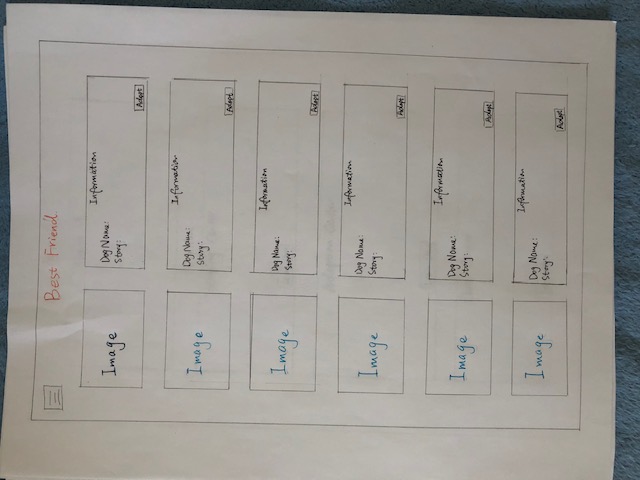 Best Friend
Image
Information
Dog Name:
Story:
Adopt
Image
Information
Dog Name:
Story:
Adopt
Image
Information
Dog Name:
Story:
Adopt
Image
Information
Dog Name:
Story:
Adopt
Image
Information
Dog Name:
Story:
Adopt
Image
Information
Dog Name:
Story:
Adopt